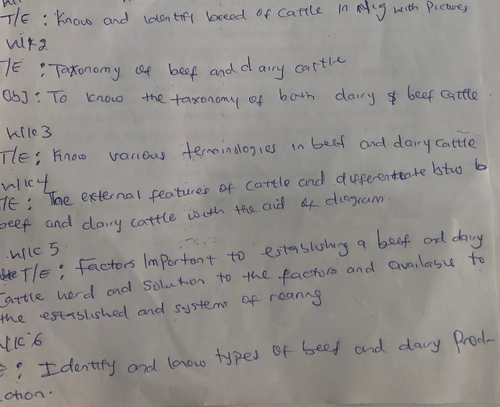 T/E : Know and identify breed of cattle in Nig with Pictures
wk2
T/E : Taxonomy of beef and dairy cattle
Obj : To know the taxonomy of both dairy & beef cattle.
wk3
T/E : Know various terminologies in beef and dairy cattle
wk4
T/E : The external features of cattle and differentiate btw b
beef and dairy cattle with the aid of diagram
wk 5
T/E : Factors Important to establishing a beef and dairy
cattle herd and solution to the factors and available to
the established and system of rearing
wk 6
E : Identify and know types of beef and dairy Prod-
ction.